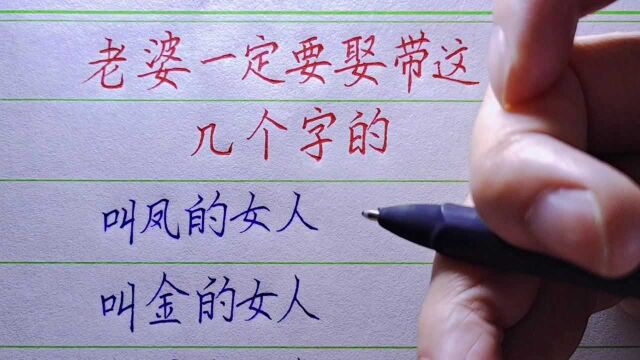 老婆一定要娶带这
几个字的
叫凤的女人
叫金的女人